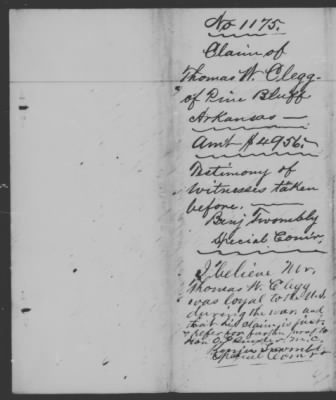 No 1175.
Claim of
Thomas W. Clegg
of Pine Bluff
Arkansas —
Amt $4956.
Testimony of
witnesses taken
before. —
Benj Twombly
Special Comr.
I believe Mr.
Thomas W. Clegg
was loyal to the U.S.
during the war, and
that his claim is just,
& refer for further proof to
Hon O P Snyder M.C.
Benjn Twombly
Special Comr